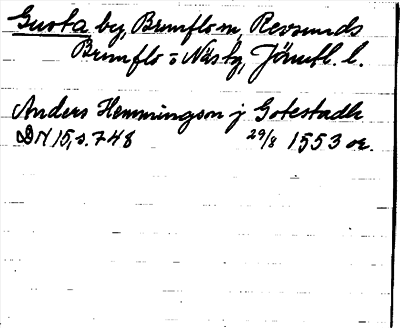 Gusta by, Brunflo sn, Revsunds
Brunflo o Näs tg, Jämtl. l.
Anders Hemmingson j Gotestadh
DN 15, s. 748 29/8 1553 or.